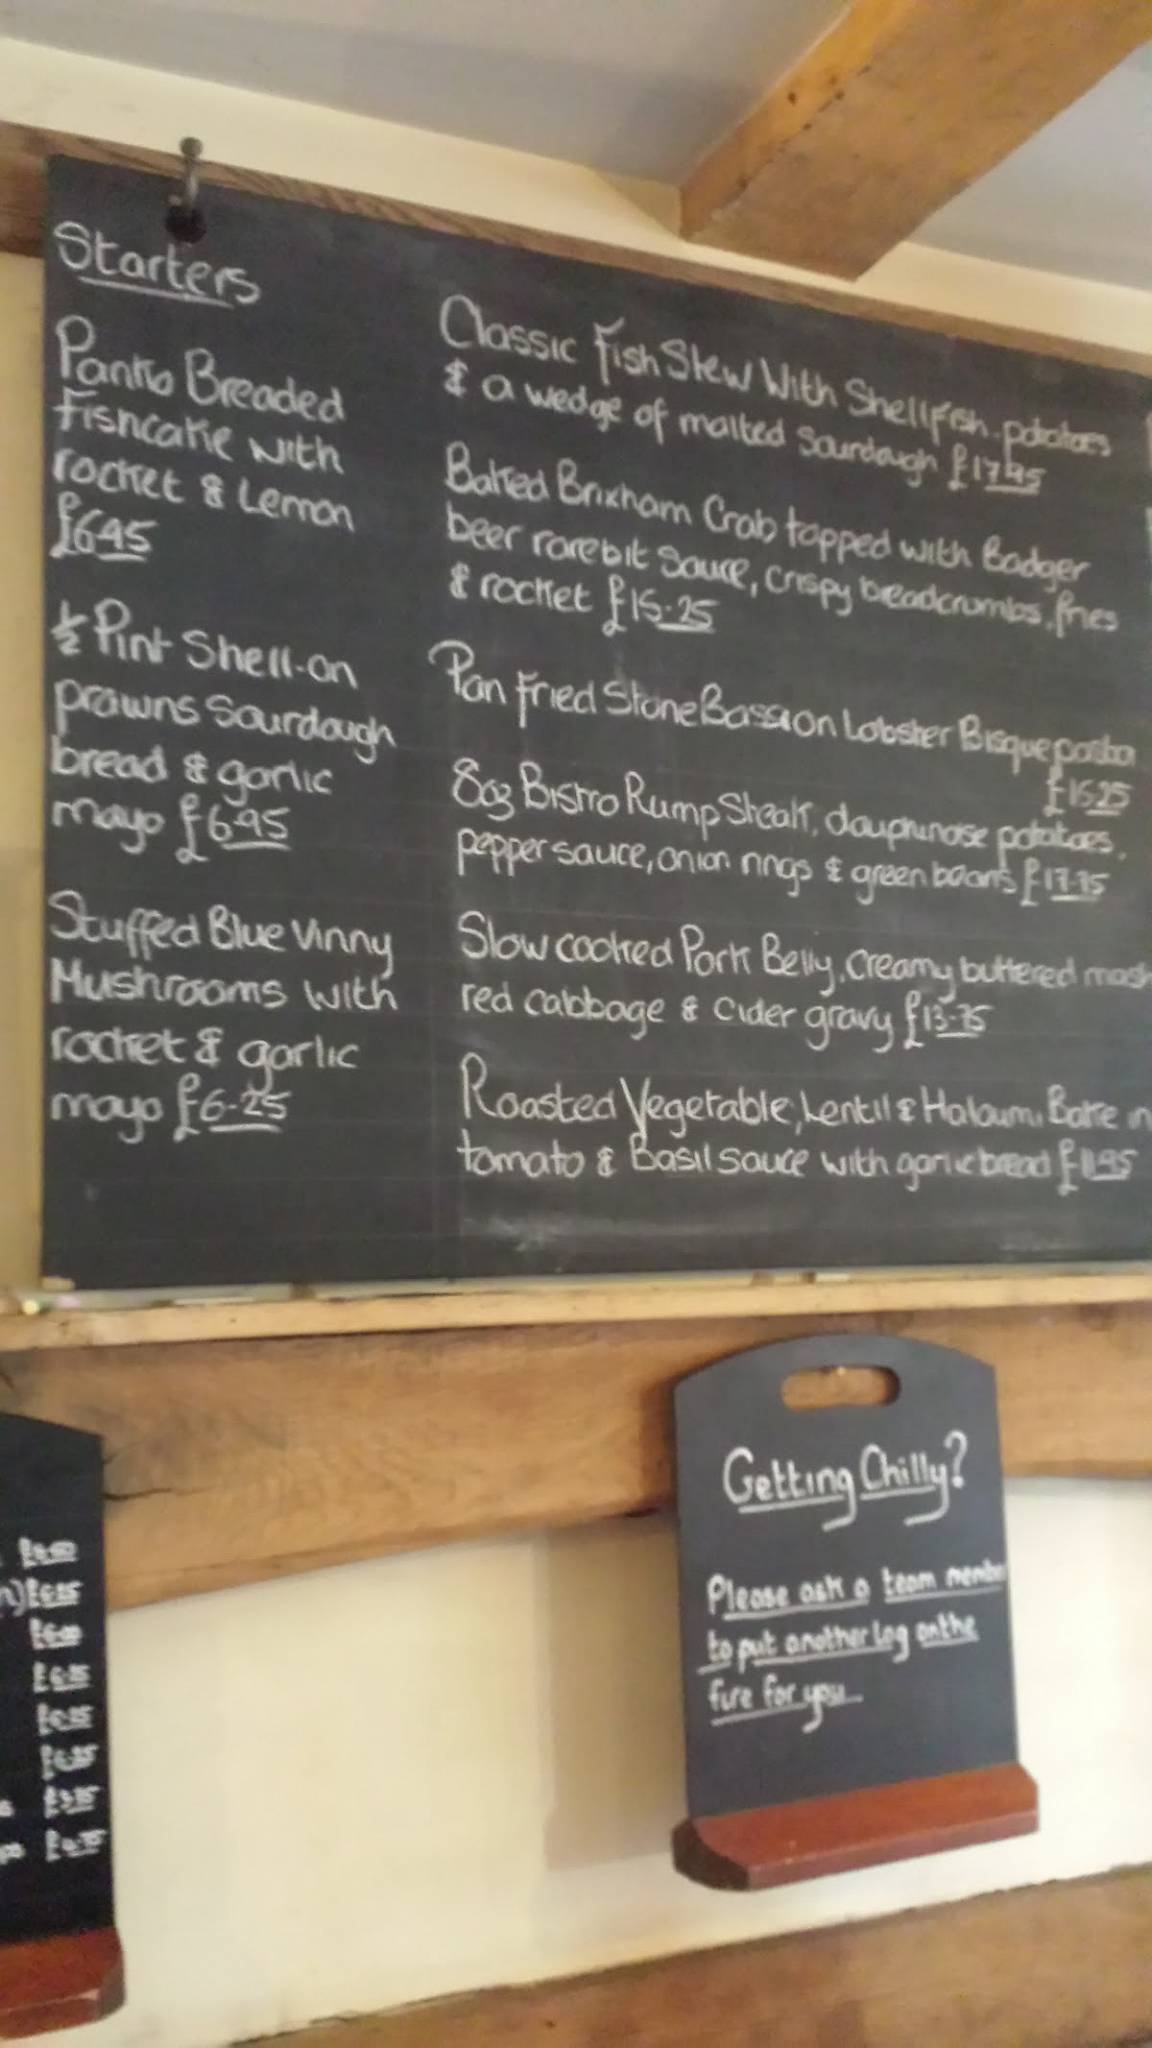 Starters
Panko Breaded
Fishcake with
rocket & Lemon
£6.95
½ Pint Shell-on
prawns Sourdough
bread & garlic
mayo £6.95
Stuffed Blue Vinny
Mushrooms with
rocket & garlic
mayo £6-25
Classic Fish Stew With Shellfish. potatoes
& a wedge of malted Sourdough £17.45
Baked Brixham Crab topped with Badger
beer rarebit Sauce, crispy breadcrumbs, fries
& rocket £15-25
Pan Fried Stone Bass on Lobster Bisque pasta
£15.25
8oz Bistro Rump Steak, dauphinose potatoes,
pepper sauce, onion rings & green beans £17.75
Slow cooked Pork Belly, creamy buttered mash
red cabbage & Cider gravy £13-75
Roasted Vegetable, Lentil & Haloumi Bake in
tomato & Basil sauce with garlic bread £11.95
Getting Chilly?
Please ask a team member
to put another log on the
fire for you...